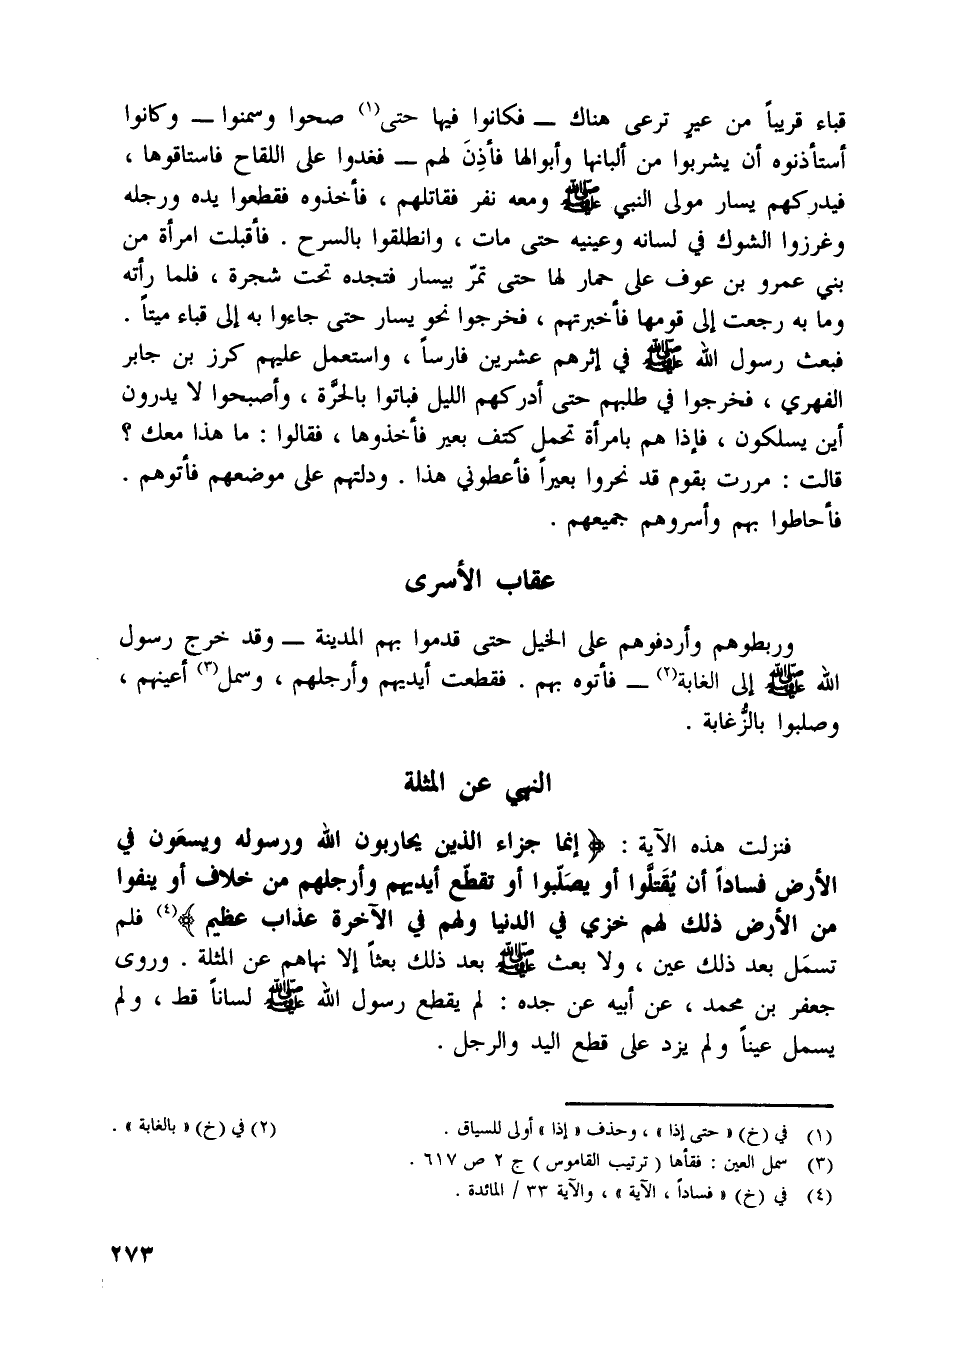 قباء قريباً من عيرٍ ترعى هناك ــ فكانوا فيها حتى(١) صحوا وسمنوا ــ وكانوا
أستأذنوه أن يشربوا من ألبانها وأبوالها فأذِنَ لهم ــ فغدوا على اللقاح فاستاقوها ،
فيدركهم يسار مولى النبي ﷺ ومعه نفر فقاتلهم ، فأخذوه فقطعوا يده ورجله
وغرزوا الشوك في لسانه وعينيه حتى مات ، وانطلقوا بالسرح . فأقبلت امرأة من
بني عمرو بن عوف على حمار لها حتى تمرّ بيسار فتجده تحت شجرة ، فلما رأته
وما به رجعت إلى قومها فأخبرتهم ، فخرجوا نحو يسار حتى جاءوا به إلى قباء ميتاً .
فبعث رسول الله ﷺ في إثرهم عشرين فارساً ، واستعمل عليهم كرز بن جابر
الفهري ، فخرجوا في طلبهم حتى أدركهم الليل فباتوا بالحَّرة ، وأصبحوا لا يدرون
أين يسلكون ، فإذا هم بامرأة تحمل كتف بعير فأخذوها ، فقالوا : ما هذا معك ؟
قالت : مررت بقوم قد نحروا بعيراً فأعطوني هذا . ودلتهم على موضعهم فأتوهم .
فأحاطوا بهم وأسروهم جميعهم .
عقاب الأسرى
وربطوهم وأردفوهم على الخيل حتى قدموا بهم المدينة ــ وقد خرج رسول
الله ﷺ إلى الغابة(٢) ــ فأتوه بهم . فقطعت أيديهم وأرجلهم ، وسمل(٣) أعينهم ،
وصلبوا بالزُّغابة .
النهي عن المثلة
فنزلت هذه الآية : ﴿ إنما جزاء الذين يحاربون الله ورسوله ويسعَون في
الأرض فساداً أن يُقَتلَّوا أو يصَلّبوا أو تقطّع أيديهم وأرجلهم من خلاف أو ينفوا
من الأرض ذلك لهم خزي في الدنيا ولهم في الآخرة عذاب عظيم ﴾(٤) فلم
تسمَل بعد ذلك عين ، ولا بعث ﷺ بعد ذلك بعثاً إلا نهاهم عن المثلة . وروى
جعفر بن محمد ، عن أبيه عن جده : لم يقطع رسول الله ﷺ لساناً قط ، ولم
يسمل عيناً ولم يزد على قطع اليد والرجل .
(١) في (خ) « حتى إذا » ، وحذف « إذا » أولى للسياق . (٢) في (خ) « بالغابة » .
(٣) سمل العين : فقأها ( ترتيب القاموس ) ج ٢ ص ٦١٧ .
(٤) في (خ) « فساداً ، الآية » ، والآية ٣٣ / المائدة .
٢٧٣